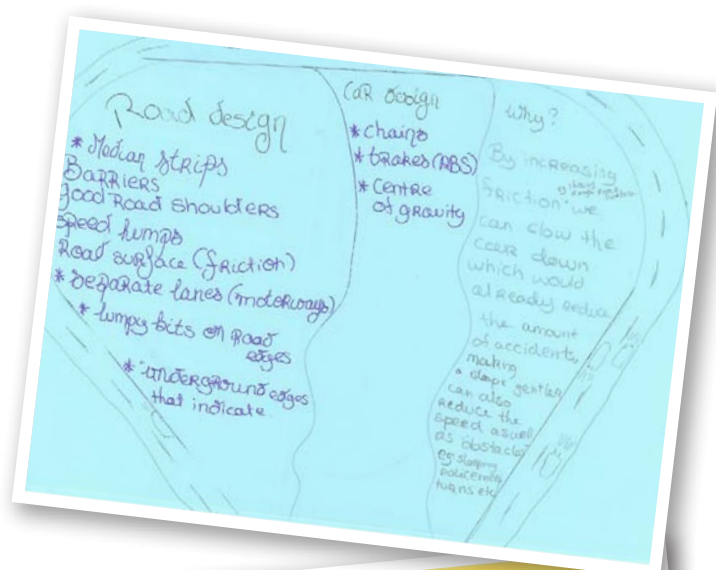 Road design
* Median strips
Barriers
good road shoulders
speed humps
Road surface (friction)
* separate lanes (moterways)
* lumpy bits on road
edges
* underground edges
that indicate
Car design
* chains
* brakes (ABS)
* Centre
of gravity
Why?
By increasing
friction we
can slow the
car down
which would
already reduce
the amount
of accidents,
making
a slope gentler
can also
reduce the
speed aswell
as obstacles
eg sleeping
policemen,
turns etc